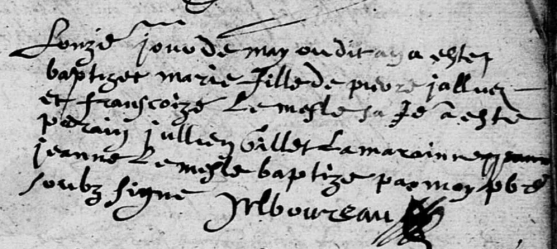 Lonze jour de may oudit an a ester
baptizee marie fille de pierre jallues
et francoize Le mesle sa fe a este
parain jullien Gillet La marainne
jeanne Le mesle baptize par moy pbre
soubz signe Mboureau